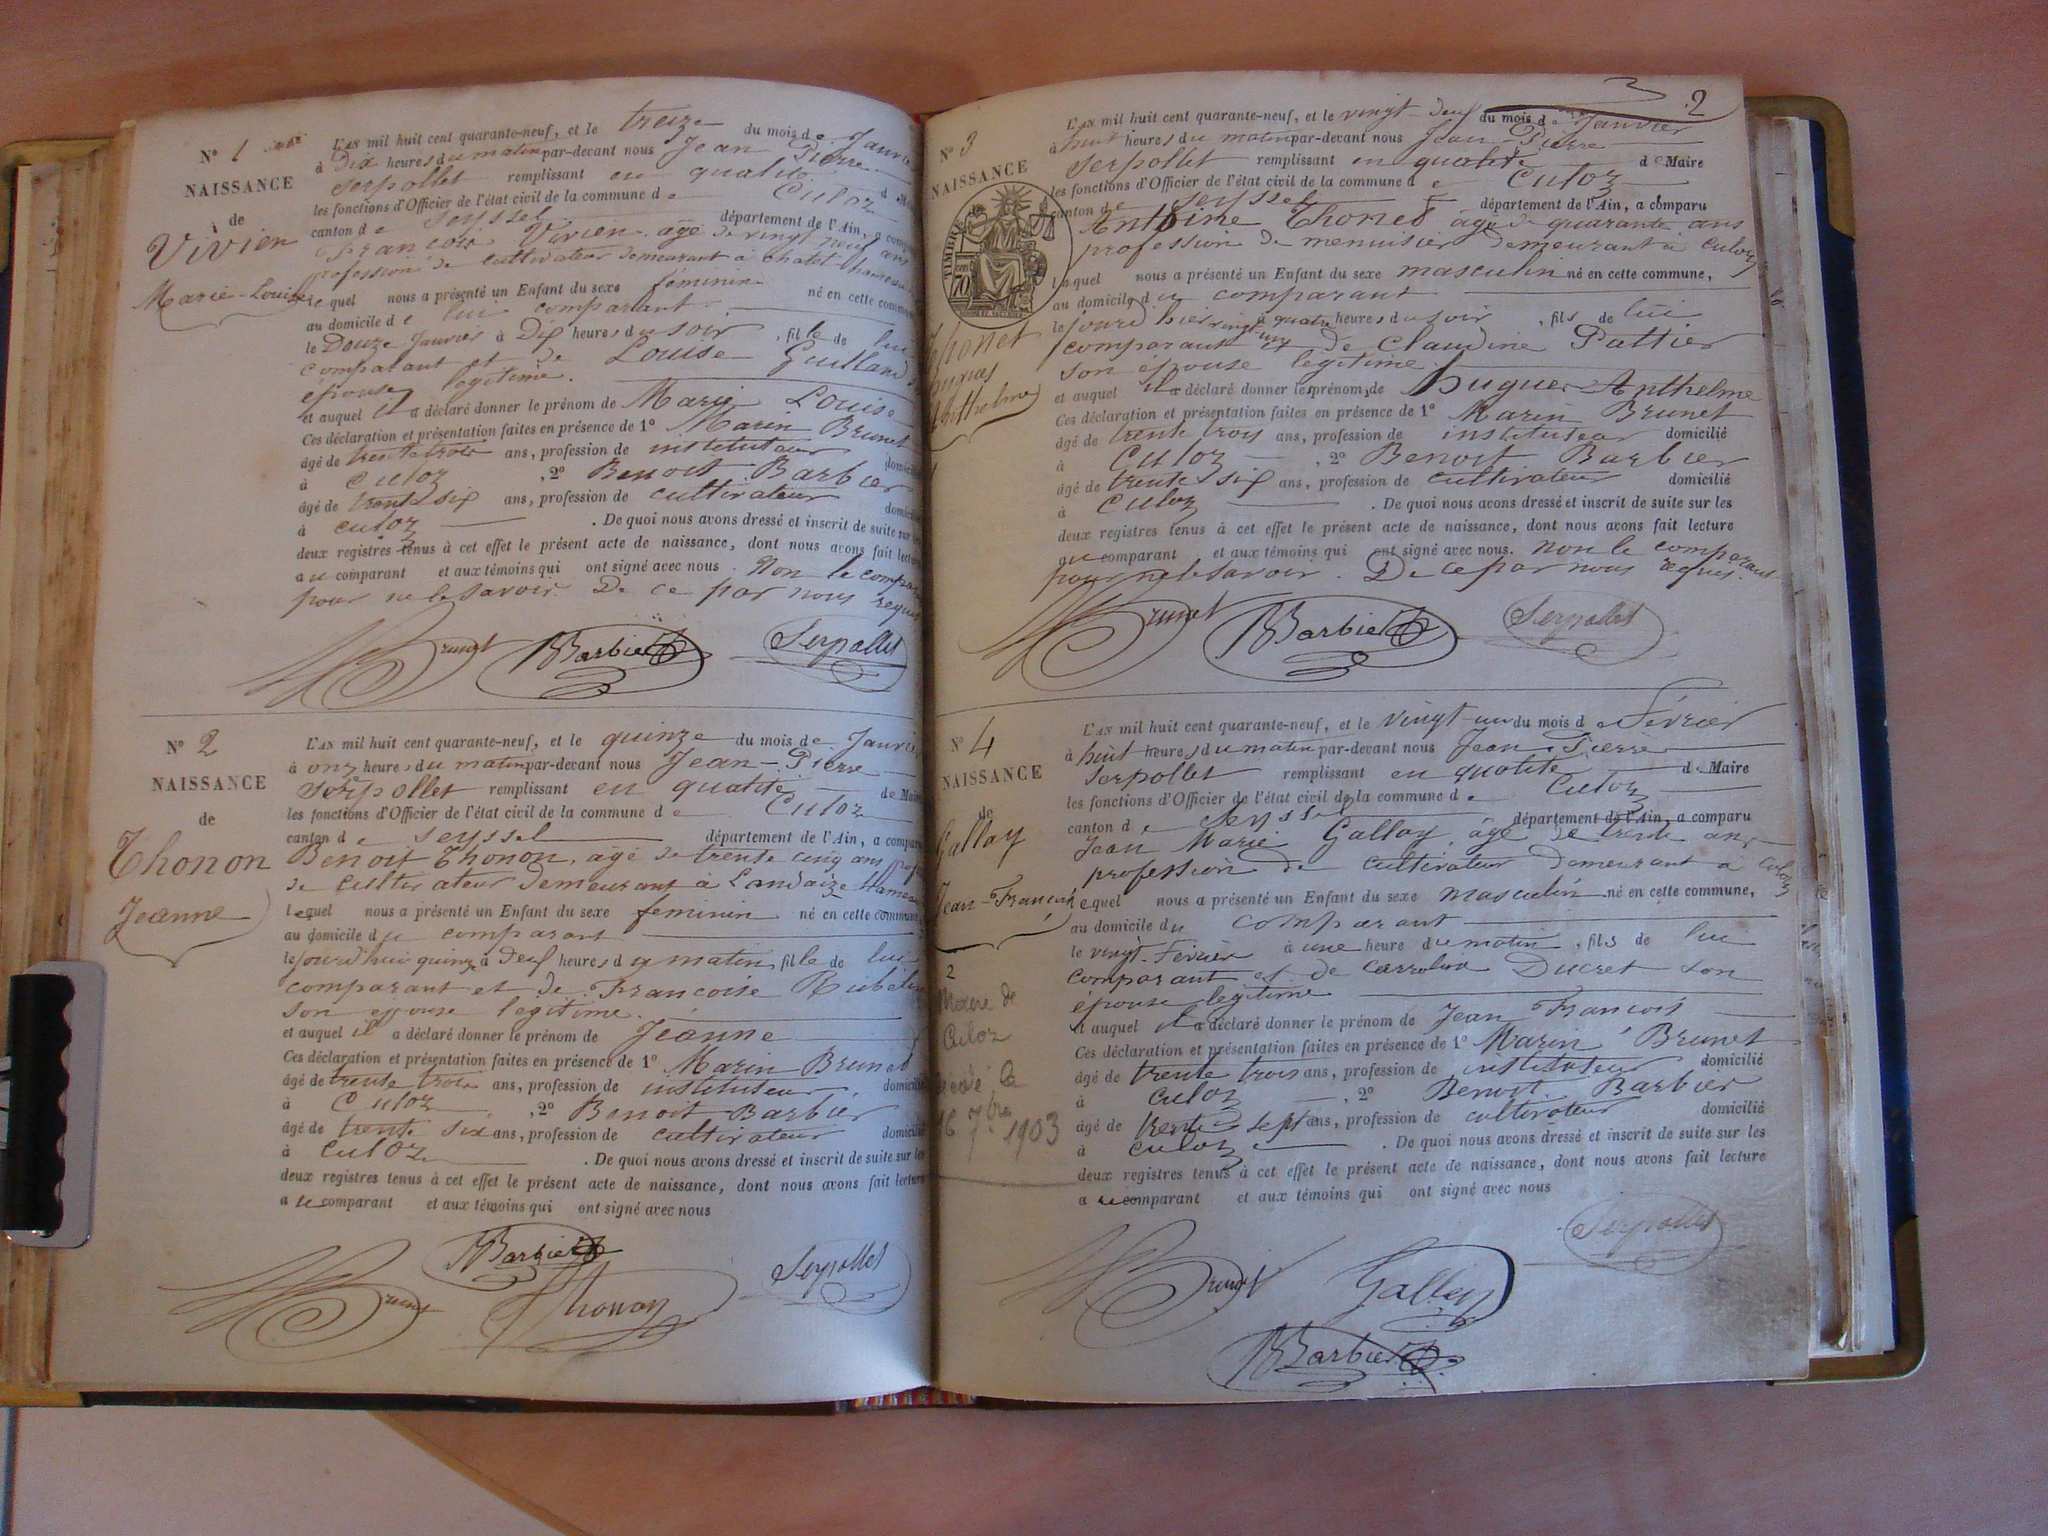 N° 1
NAISSANCE
de
Vivien
Marie-Louise
L'An mil huit cent quarante-neuf, et le treize du mois de Janvier
à Dix heures du matin par-devant nous Jean Pierre
Serpollet remplissant en qualité d
les fonctions d'Officier de l'état civil de la commune de Culoz
canton de Seyssel département de l'Ain, a comparu
François Vivien âgé de vingt neuf ans
profession de cultivateur demeurant à
lequel nous a présenté un Enfant du sexe féminin né en cette commune
au domicile de lui comparant
le Douze Janvier à Dix heures du soir, fille de lui
comparant et de Louise Guilland
épouse legitime.
et auquel il a déclaré donner le prénom de Marie Louise
Ces déclaration et présentation faites en présence de 1° Marin Brunet
âgé de trente trois ans, profession de instituteur domicilié
à Culoz, 2° Benoit Barbier
âgé de trente six ans, profession de cultivateur domicilié
à Culoz. De quoi nous avons dressé et inscrit de suite sur les
deux registres tenus à cet effet le présent acte de naissance, dont nous avons fait lecture
au comparant et aux témoins qui ont signé avec nous. Non le comparant
pour ne le savoir. De ce par nous requis
Brunet BBarbier Serpollet
N° 2
NAISSANCE
de
Thonon
Jeanne
L'An mil huit cent quarante-neuf, et le quinze du mois de Janvier
à onz heures du matin par-devant nous Jean-Pierre
Serpollet remplissant en qualité de Maire
les fonctions d'Officier de l'état civil de la commune de Culoz
canton de Seyssel département de l'Ain, a comparu
Benoit Thonon, âgé de trente cinq ans prof
de cultivateur demeurant à Landaize
lequel nous a présenté un Enfant du sexe feminin né en cette commune
au domicile du comparant
le jourd'hui quinze à Deux heures du matin, fille de lui
comparant et de Francoise
son epouse legitime.
et auquel il a déclaré donner le prénom de Jeanne
Ces déclaration et présentation faites en présence de 1° Marin Brunet
âgé de trente trois ans, profession de instituteur, domicilié
à Culoz, 2° Benoit Barbier
âgé de trente six ans, profession de cultivateur domicilié
à Culoz. De quoi nous avons dressé et inscrit de suite sur les
deux registres tenus à cet effet le présent acte de naissance, dont nous avons fait lecture
au comparant et aux témoins qui ont signé avec nous
BBarbier
Brunet Thonon Serpollet
2
N° 3
NAISSANCE
TIMBRE
70
Thonet
hugues
Anthelme
L'An mil huit cent quarante-neuf, et le vingt deux du mois de Janvier
à huit heures du matin par-devant nous Jean-Pierre
Serpollet remplissant en qualité de Maire
les fonctions d'Officier de l'état civil de la commune de Culoz
canton de Seyssel département de l'Ain, a comparu
Antoine Thonet âgé de quarante ans
profession de menuisier demeurant à culoz
lequel nous a présenté un Enfant du sexe masculin né en cette commune,
au domicile du comparant
le jourd'hier vingt un à quatre heures du soir, fils de lui
comparant et de Claudine Pattier
son épouse legitime
et auquel il a déclaré donner les prénoms de hugues Anthelme
Ces déclaration et présentation faites en présence de 1° Marin Brunet
âgé de trente trois ans, profession de instituteur domicilié
à Culoz, 2° Benoit Barbier
âgé de trente six ans, profession de cultivateur domicilié
à Culoz. De quoi nous avons dressé et inscrit de suite sur les
deux registres tenus à cet effet le présent acte de naissance, dont nous avons fait lecture
au comparant et aux témoins qui ont signé avec nous. Non le comparant
pour ne le savoir. De ce par nous requis.
Brunet BBarbier Serpollet
N° 4
NAISSANCE
de
Gallay
Jean-François
2
Maire de
Culoz
16 7bre 1903
L'An mil huit cent quarante-neuf, et le vingt-un du mois de Février
à huit heures du matin par-devant nous Jean-Pierre
Serpollet remplissant en qualité de Maire
les fonctions d'Officier de l'état civil de la commune de Culoz
canton de Seyssel département de l'Ain, a comparu
Jean Marie Gallay, âgé de trente ans
profession de cultivateur demeurant à culoz
lequel nous a présenté un Enfant du sexe masculin né en cette commune,
au domicile du comparant
le vingt Février à une heure du matin, fils de lui
comparant et de Carroline Ducret son
épouse legitime
et auquel il a déclaré donner le prénom de Jean François
Ces déclaration et présentation faites en présence de 1° Marin Brunet
âgé de trente trois ans, profession de instituteur domicilié
à culoz, 2° Benoit Barbier
âgé de trente sept ans, profession de cultivateur domicilié
à culoz. De quoi nous avons dressé et inscrit de suite sur les
deux registres tenus à cet effet le présent acte de naissance, dont nous avons fait lecture
au comparant et aux témoins qui ont signé avec nous
Serpollet
Brunet Gallay
BBarbier